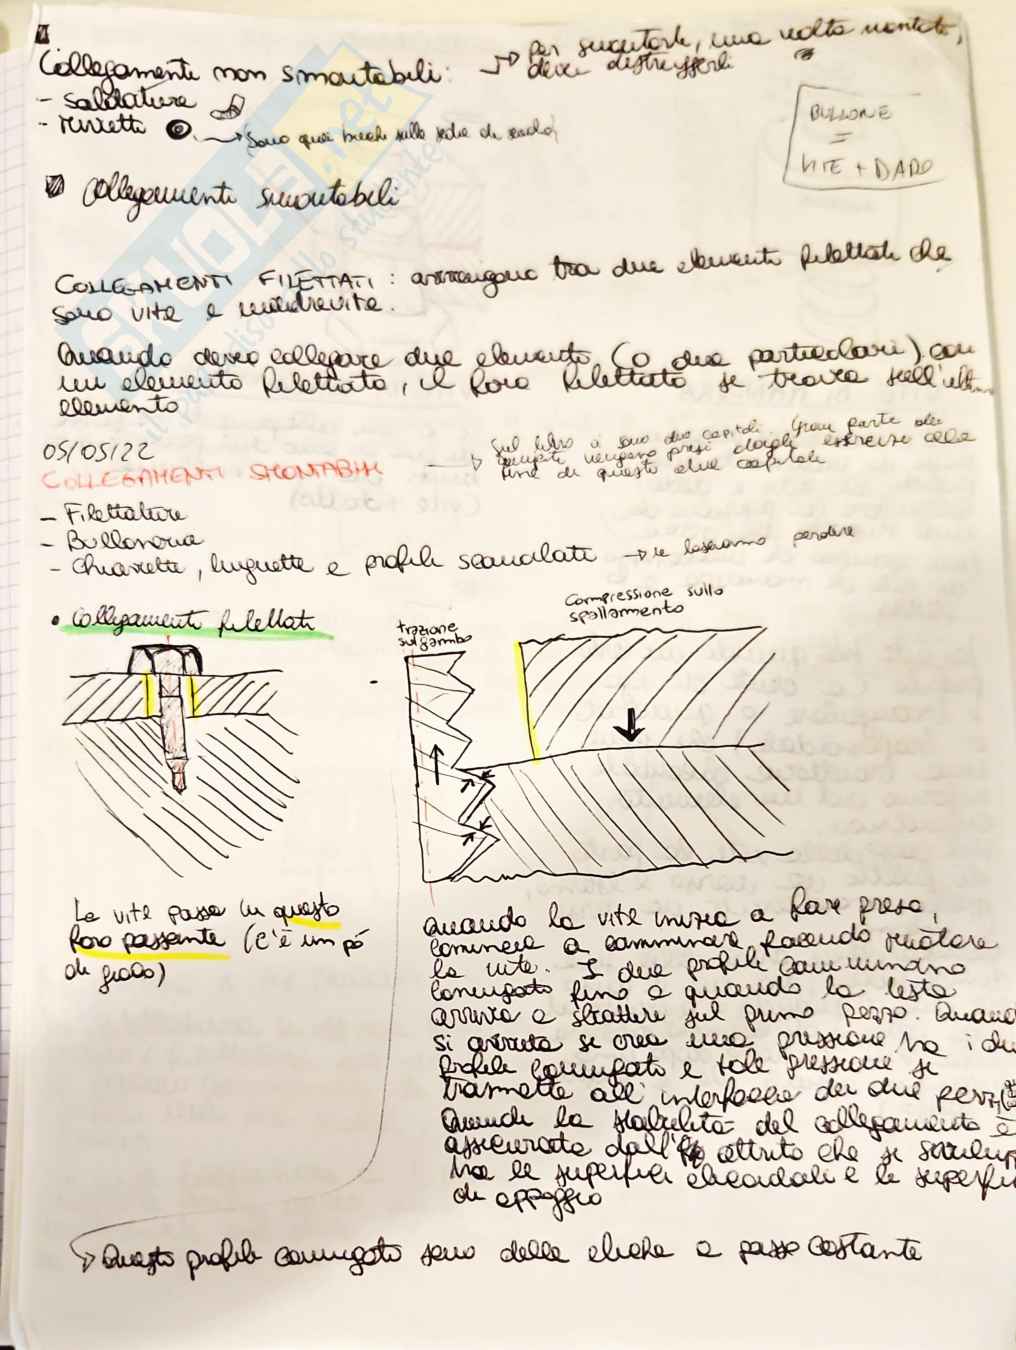 Collegamenti non smontabili: → per smontarli, una volta montati,
devi distruggerli
- saldatura
- rivetti → sono quei buchi sulla sedia di scuola
BULLONE
=
VITE + DADO
Collegamenti smontabili
COLLEGAMENTI FILETTATI: avvengono tra due elementi filettati che
sono vite e madrevite.
Quando devo collegare due elementi (o due particolari) con
un elemento filettato, il foro filettato si trova sull'ultimo
elemento
05/05/22
COLLEGAMENTI SMONTABILI → Sul libro ci sono due capitoli. Gran parte dei
vengono presi dagli esercizi alla
fine di questi due capitoli
- Filettature
- Bulloneria
- Chiavette, linguette e profili scanalati → le lasciamo perdere
• Collegamenti filettati
trazione
sul gambo
Compressione sullo
spallamento
La vite passa in questo
foro passante (c'è un pó
di gioco)
Quando la vite inizia a fare presa,
comincia a camminare facendo ruotare
la vite. I due profili camminano
coniugati fino a quando la testa
arriva a sbattere sul primo pezzo. Quando
si avvita si crea una pressione tra i due
profili coniugati e tale pressione si
trasmette all'interfaccia dei due pezzi
Quindi la stabilità del collegamento è
assicurata dall' attrito che si sviluppa
tra le superfici elicoidali e le superfici
di appoggio
→ Questi profili coniugati sono delle eliche a passo costante
SKUOLA.net
il paradiso dello studente